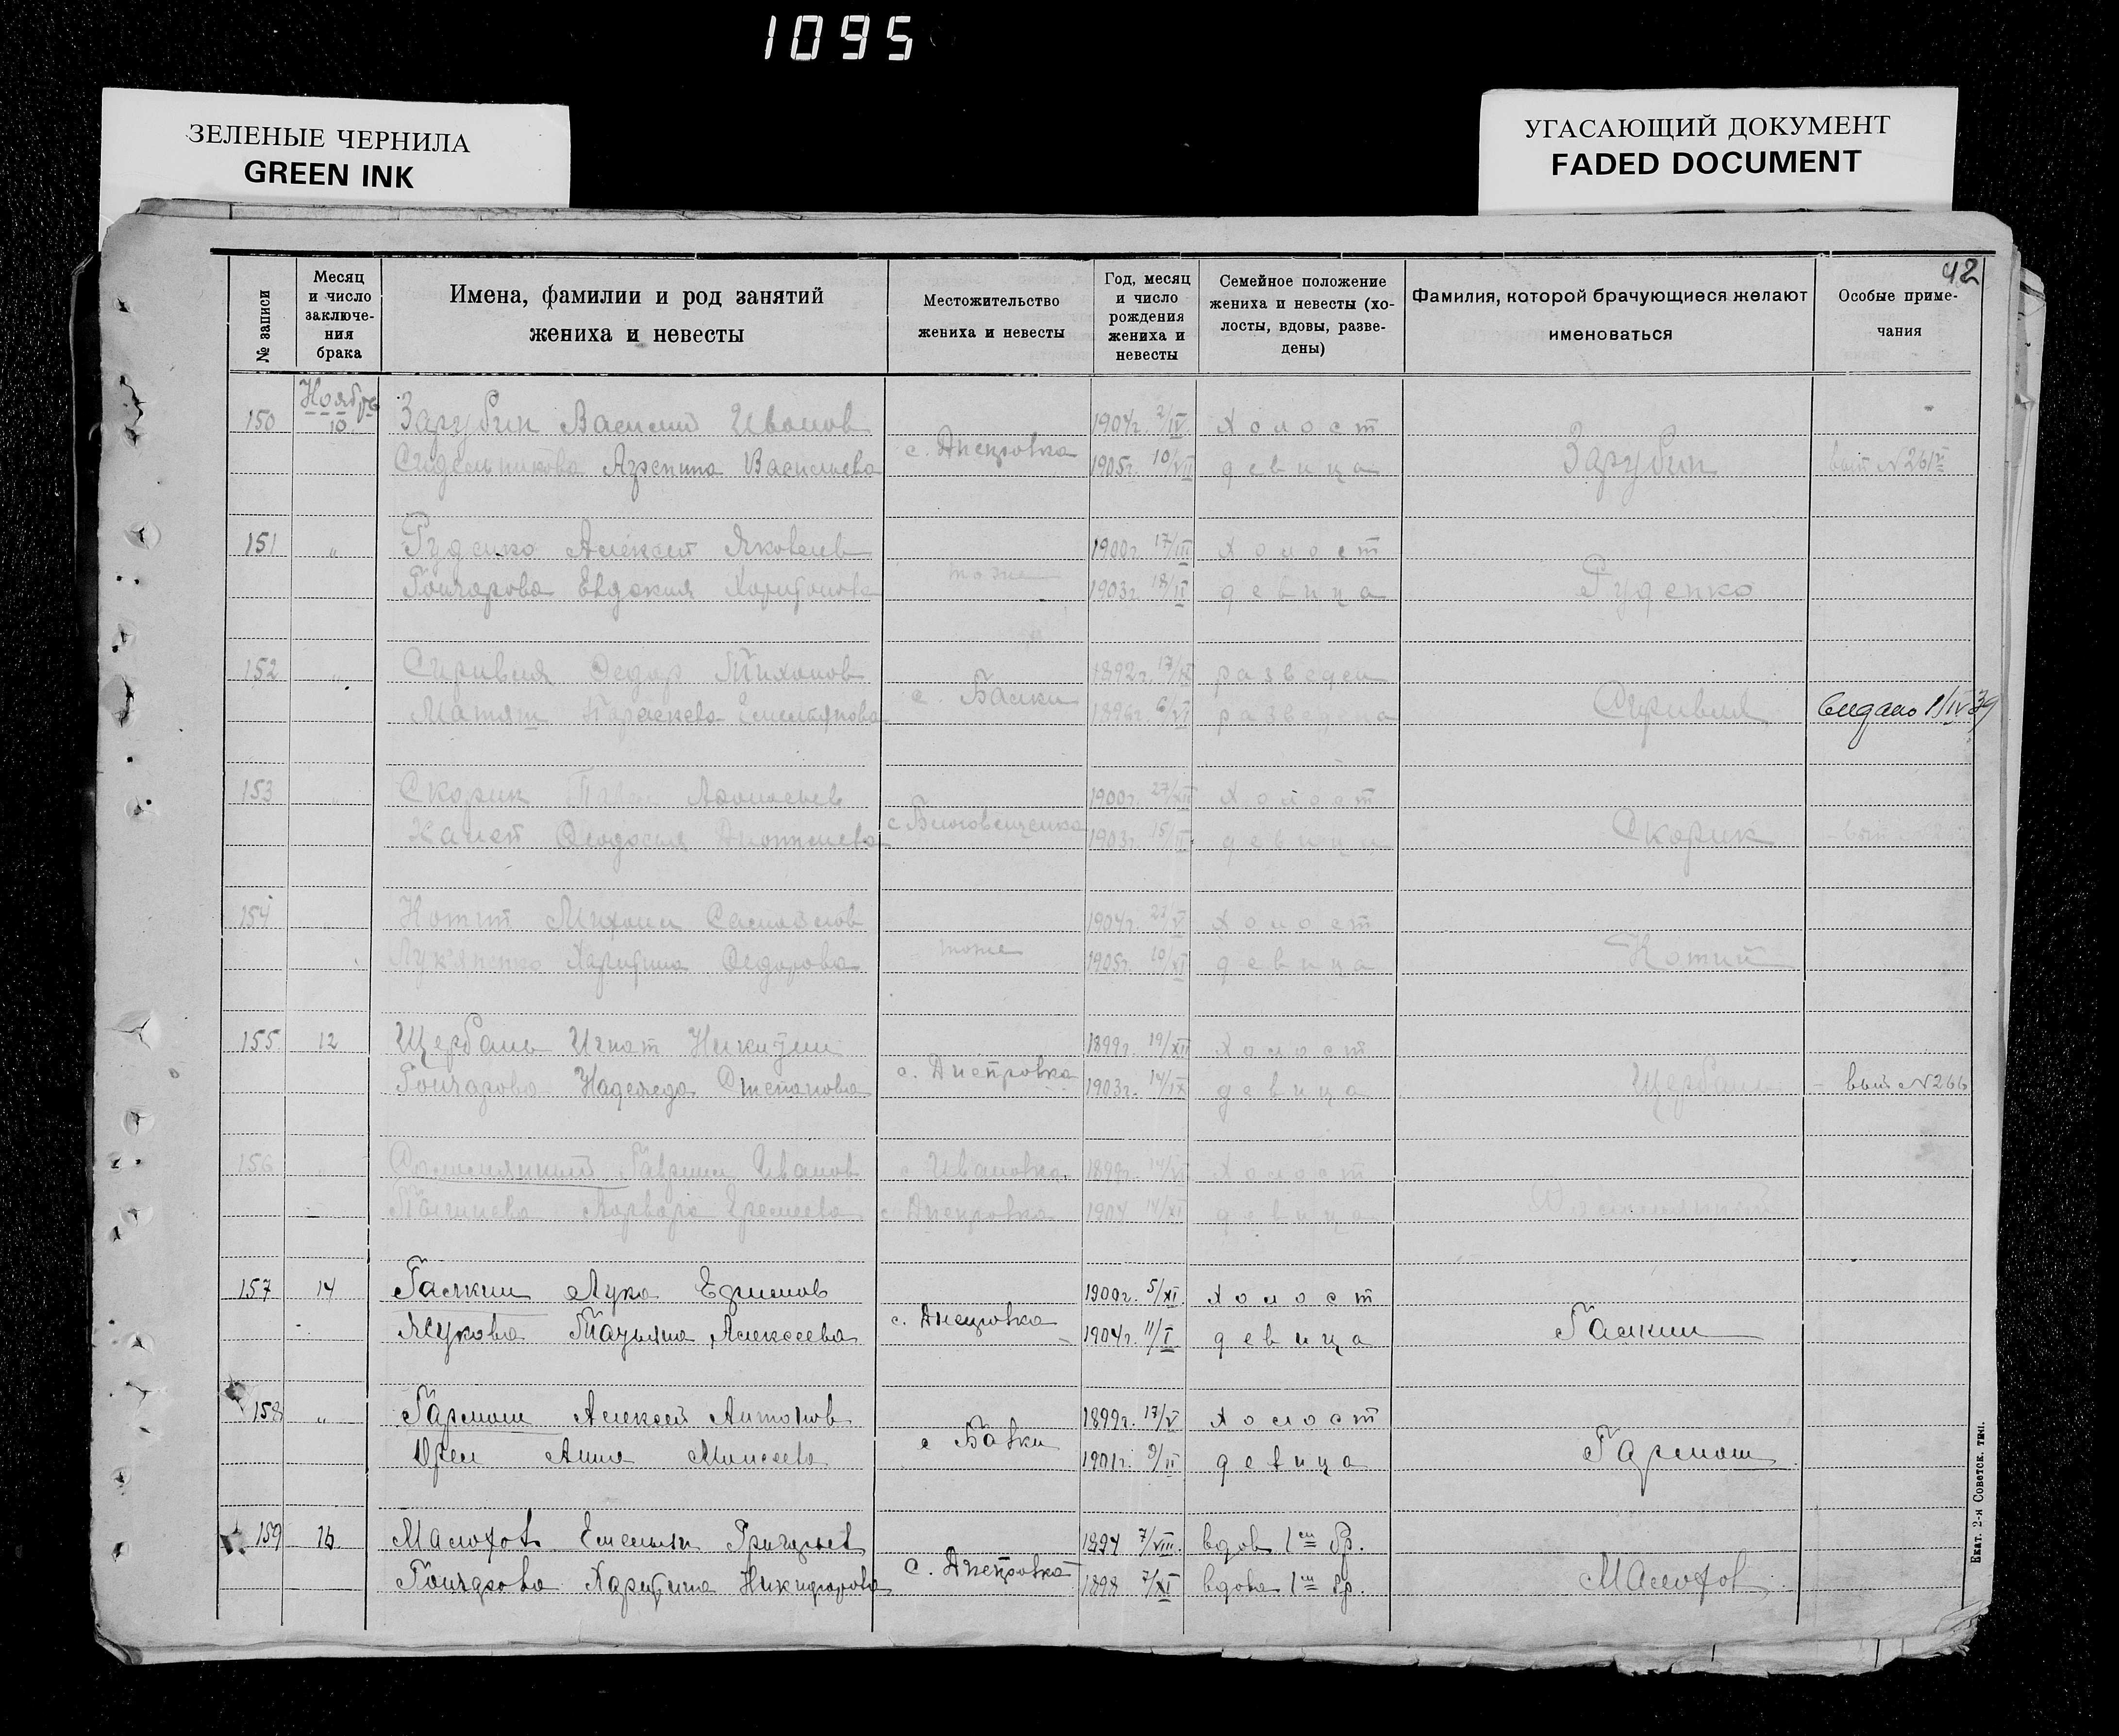 1095
ЗЕЛЕНЫЕ ЧЕРНИЛА
GREEN INK
УГАСАЮЩИЙ ДОКУМЕНТ
FADED DOCUMENT
42
№ записи
Месяц и число заключе-ния брака
Имена, фамилии и род занятий жениха и невесты
Местожительство жениха и невесты
Год, месяц и число рождения жениха и невесты
Семейное положение жениха и невесты (хо-лосты, вдовы, разве-дены)
Фамилия, которой брачующиеся желают именоваться
Особые приме-чания
Ноябрь
150 10 Зарубин Василий Иванов 1904г. 2/IV холост
Сидельникова Агрепина Васильева с. Днепровка 1905г. 10/VII девица Зарубин
151 " Руденко Алексей Яковлев 1900г. 17/III холост
Гончарова Евдокия Харитонова тоже 1903г. 18/II девица Руденко
152 " Федор Тихонов 1892г. разведен
Параскева Емельянова с. Балки 6/VI разведена видано 1/IV 39
153 " Скорик Павел Афонасьев 1900г. 27/XII холост
Феодосия 1903г. девица Скорик
154 " Михаил Самойлов 1904г. холост
Лук'яненко Харитина Федорова тоже 1905г. 10/XI девица Котий
155 12 Щербань Игнат Никитин 1899г. 19/XII холост
Гончарова Надежда Степанова с. Днепровка 1903г. 14/IX девица Щербань вып №266
156 " Гаврил Иванов с Ивановка 1899г. холост
Варвара Еремеева с Днепровка 1904 14/XI девица
157 14 Галкин Лука Ефимов 1900г. 5/XI холост
Жукова Татьяна Алексеева с. Днепровка 1904г. 11/I девица Галкин
158 " Гармаш Алексей Антонов 1899г. 17/V холост
Орел Анна Моисеева с Балки 1901г. 9/II девица Гармаш
159 16 Малохов Емельян Григорьев 1894 7/VIII. вдов 1ᵐ бр.
Гончарова Харитина Никифорова с. Днепровка 1898 7/XI вдова 1ᵐ бр. Малохов
Екат. 2-я Советск. тип.